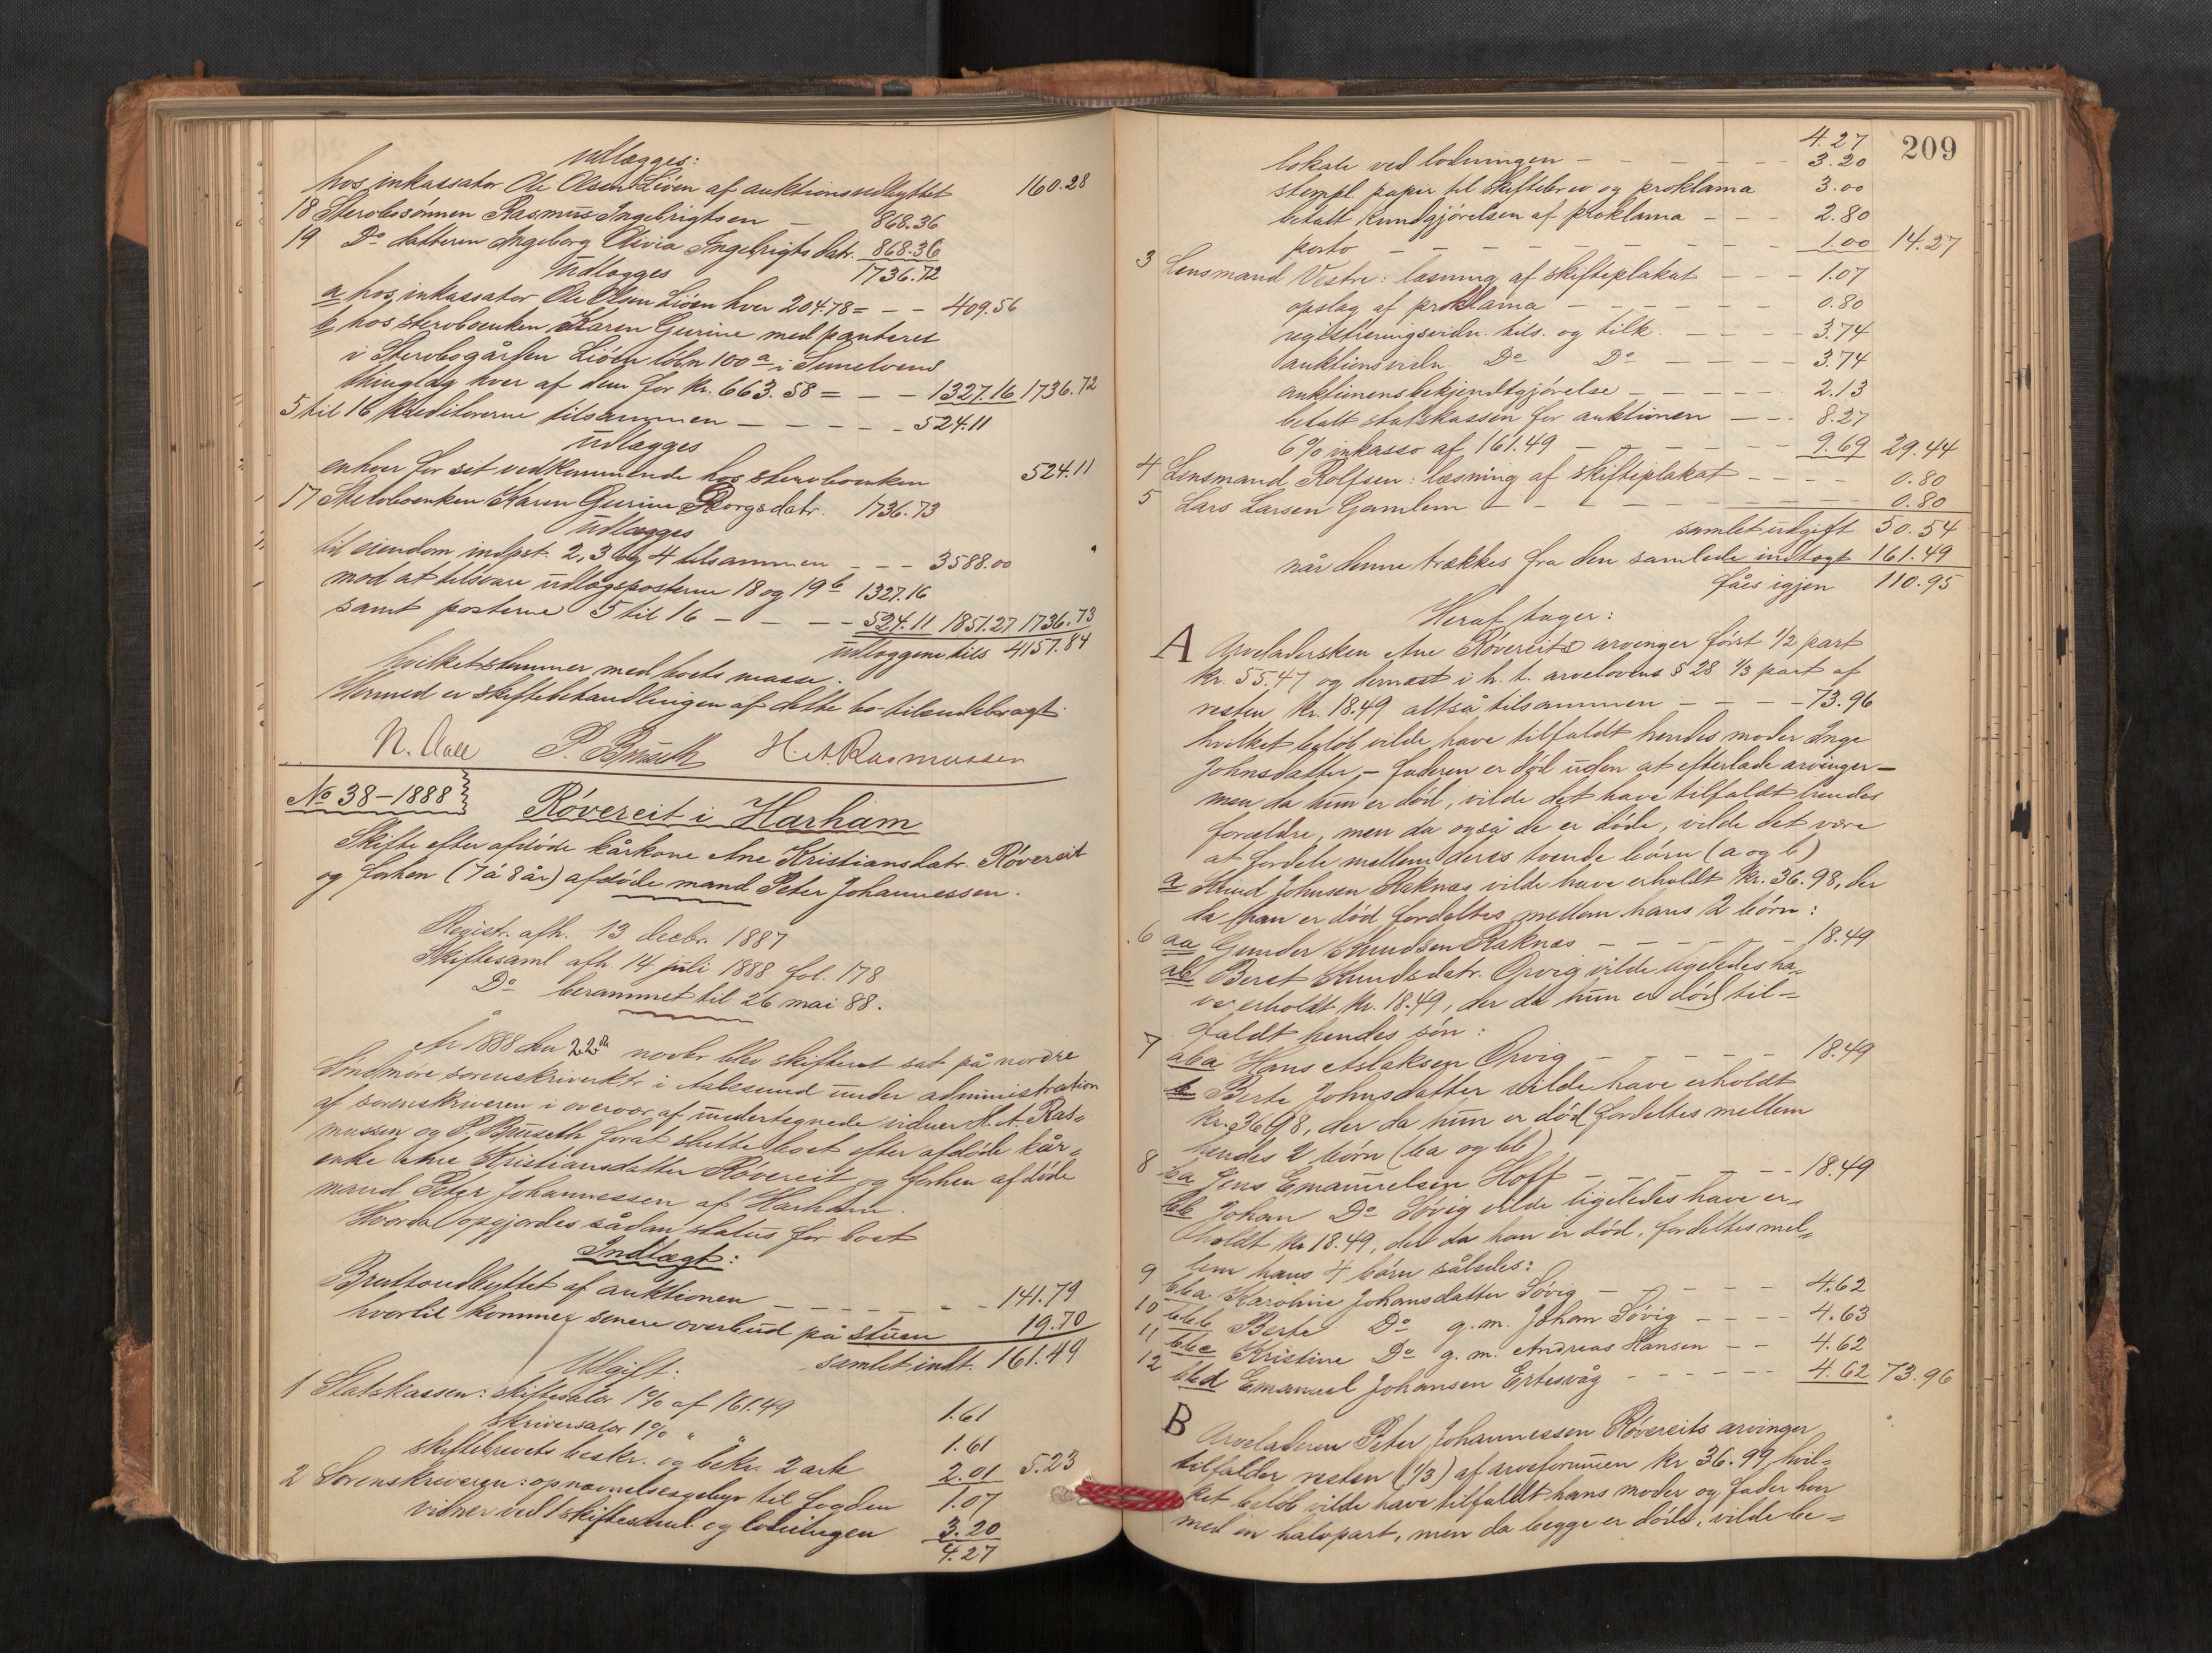 udlægges:
hos inkassator Ole Olsen Liøen af auktionsudbyttet 160.28
18 Stervbosønnen Rasmus Ingebrigtsen — 868.36
19 Do datteren Ingeborg Olivia Ingebrigtsdatr. 868.36
udlægges 1736.72
a hos inkassator Ole Olsen Liøen hver 204.78 = — — 409.56
b hos stervboenken Karen Gurine med panteret
i Stervbogården Liøen løbn 100 a i Sunelvens
thinglag hver af dem for kr. 663.58 = — — 1327.16 1736.72
5 til 16 Kreditorerne tilsammen — — — — — 524.11
udlægges
enhver for sit vedkommende hos stervboenken 524.11
17 Stervboenken Karen Gurine datr. 1736.73
udlægges
til eiendom indpst. 2, 3 og 4 tilsammen — — — 3588.00
mod at tilsvare udlægsposterne 18 og 19 b 1327.16
samt posterne 5 til 16 — — — — 524.11 1851.27 1736.73
udlæggene tils 4157.84
hvilket stemmer med boets masse.
Hermed er skiftebehandlingen af dette bo tilendebragt.
N. Aall P. Bruseth H. A. Rasmussen
No 38 - 1888
Røvereit i Harham
Skifte efter afdøde kårkone Ane Kristiansdatr. Røvereit
og forhen (7 á 8 år) afdøde mand Peter Johannessen.
Registr. afh. 13 decbr. 1887
Skiftesaml afh. 14 juli 1888 fol. 178
Do berammet til 26 mai 88.
År 1888 den 22de novbr blev skifteret sat på nordre
Søndmøre sorenskriverktr i Aalesund under administration
af sorenskriveren i overvær af undertegnede vidner H. A. Ras=
mussen og P. Bruseth forat slutte boet efter afdøde kår=
enke Ane Kristiansdatter Røvereit og forhen afdøde
mand Peter Johannessen af Harham.
Hvorda opgjordes sådan status for boet
Indtægt:
Bruttoudbyttet af auktionen — — — — — — 141.79
hvortil kommer senere overbud på stuen 19.70
samlet indt. 161.49
Udgift:
1 Statskassen: skiftesalær 1% af 161.49 1.61
skriversalær 1% " " 1.61
skiftebrevets beskr. og bekr. 2 ark 2.01 5.23
2 Sorenskriveren: opnævnelsesgebyr til fogden 1.07
vidner ved 1 skiftesaml. og lodningen 3.20
4.27
209
4.27
lokale ved lodningen — — — — — — 3.20
stempl papir til skiftebrev og proklama 3.00
betalt kundgjørelsen af proklama — — — 2.80
porto — — — — — — — — — 1.00 14.27
3 Lensmand Vestre: læsning af skifteplakat — — — 1.07
opslag af proklama — — — — — — 0.80
registreringsvidn. tils. og tilk. — — — 3.74
auktionsvidn. Do Do — — — — 3.74
auktionensbekjendtgjørelse — — — — — 2.13
betalt statskassen for auktionen — — — 8.27
6% inkasso af 161.49 — — — — — — 9.69 29.44
4 Lensmand Rolfsen: læsning af skifteplakat — — — — 0.80
5 Lars Larsen Gamlem — — — — — — — — 0.80
samlet udgift 50.54
når denne trækkes fra den samlede indtægt 161.49
fåes igjen 110.95
Heraf tager:
A Arveladersken Ane Røvereits arvinger først 1/2 part
kr. 55.47 og dernæst i h. t. arvelovens § 28 1/3 part af
resten kr. 18.49 altså tilsammen — — — — 73.96
hvilket beløb vilde have tilfaldt hendes moder Inge
Johnsdatter, – faderen er død uden at efterlade arvinger –
men da hun er død, vilde det have tilfaldt hendes
forældre, men da også de er døde, vilde det være
at fordele mellem deres tvende børn (a og b)
a Knud Johnsen Raknæs vilde have erholdt kr. 36.98, der
da han er død fordeltes mellem hans 2 børn:
6 aa Gunder Knudsen Raknæs — — — — — 18.49
ab Beret Knudsdatr. Ørvig vilde ligeledes ha=
ve erholdt kr. 18.49, der da hun er død til=
faldt hendes søn:
7 aba Hans Aslaksen Ørvig — — — — — 18.49
b Berte Johnsdatter vilde have erholdt
kr. 36.98, der da hun er død fordeltes mellem
hendes 2 børn (ba og bb)
8 ba Jens Emanuelsen Hoff — — — — — — 18.49
bb Johan Do Søvig vilde ligeledes have er=
holdt kr 18.49, der da han er død, fordeltes mel=
lem hans 4 børn således:
9 bba Karoline Johansdatter Søvig — — — — — 4.62
10 bbb Berte Do g. m. Johan Søvig — — — — 4.63
11 bbc Kristine Do g. m. Andreas Hansen — — 4.62
12 bbd Emanuel Johansen Ertesvåg — — — — — — 4.62 73.96
B Arveladeren Peter Johannessen Røvereits arvinger
tilfalder resten (1/3) af arveformuen kr 36.99, hvil=
ket beløb vilde have tilfaldt hans moder og fader hver
med en halvpart, men da begge er døde, vilde be=